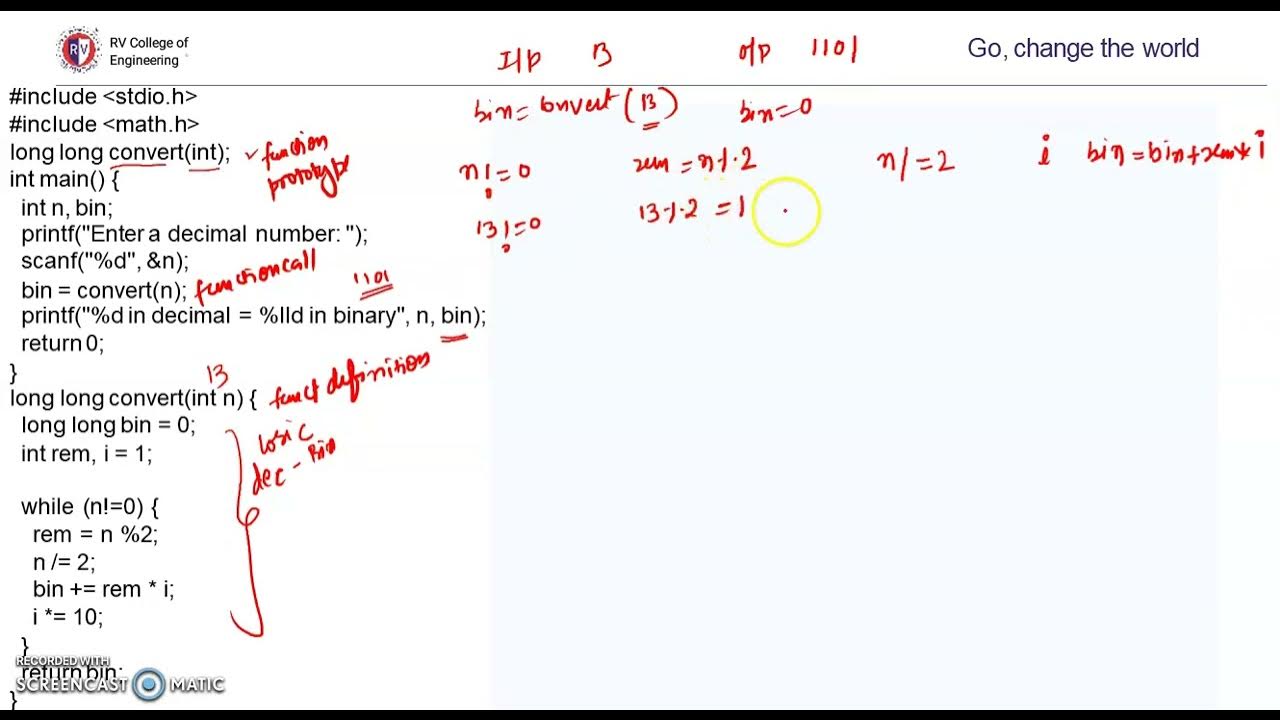 RV College of
Engineering
RV
Go, change the world
I/p 13 o/p 1101
bin = convert (13) bin=0
n!=0 rem = n%2 n/=2 i bin=bin+rem*i
13!=0 13%2 =1
#include <stdio.h>
#include <math.h>
long long convert(int); function
prototype
int main() {
int n, bin;
printf("Enter a decimal number: ");
scanf("%d", &n);
bin = convert(n); function call
1101
printf("%d in decimal = %lld in binary", n, bin);
return 0;
}
13
long long convert(int n) { funct definition
long long bin = 0;
int rem, i = 1;
logic
dec - Bin
while (n!=0) {
rem = n %2;
n /= 2;
bin += rem * i;
i *= 10;
}
return bin;
}
RECORDED WITH
SCREENCAST MATIC